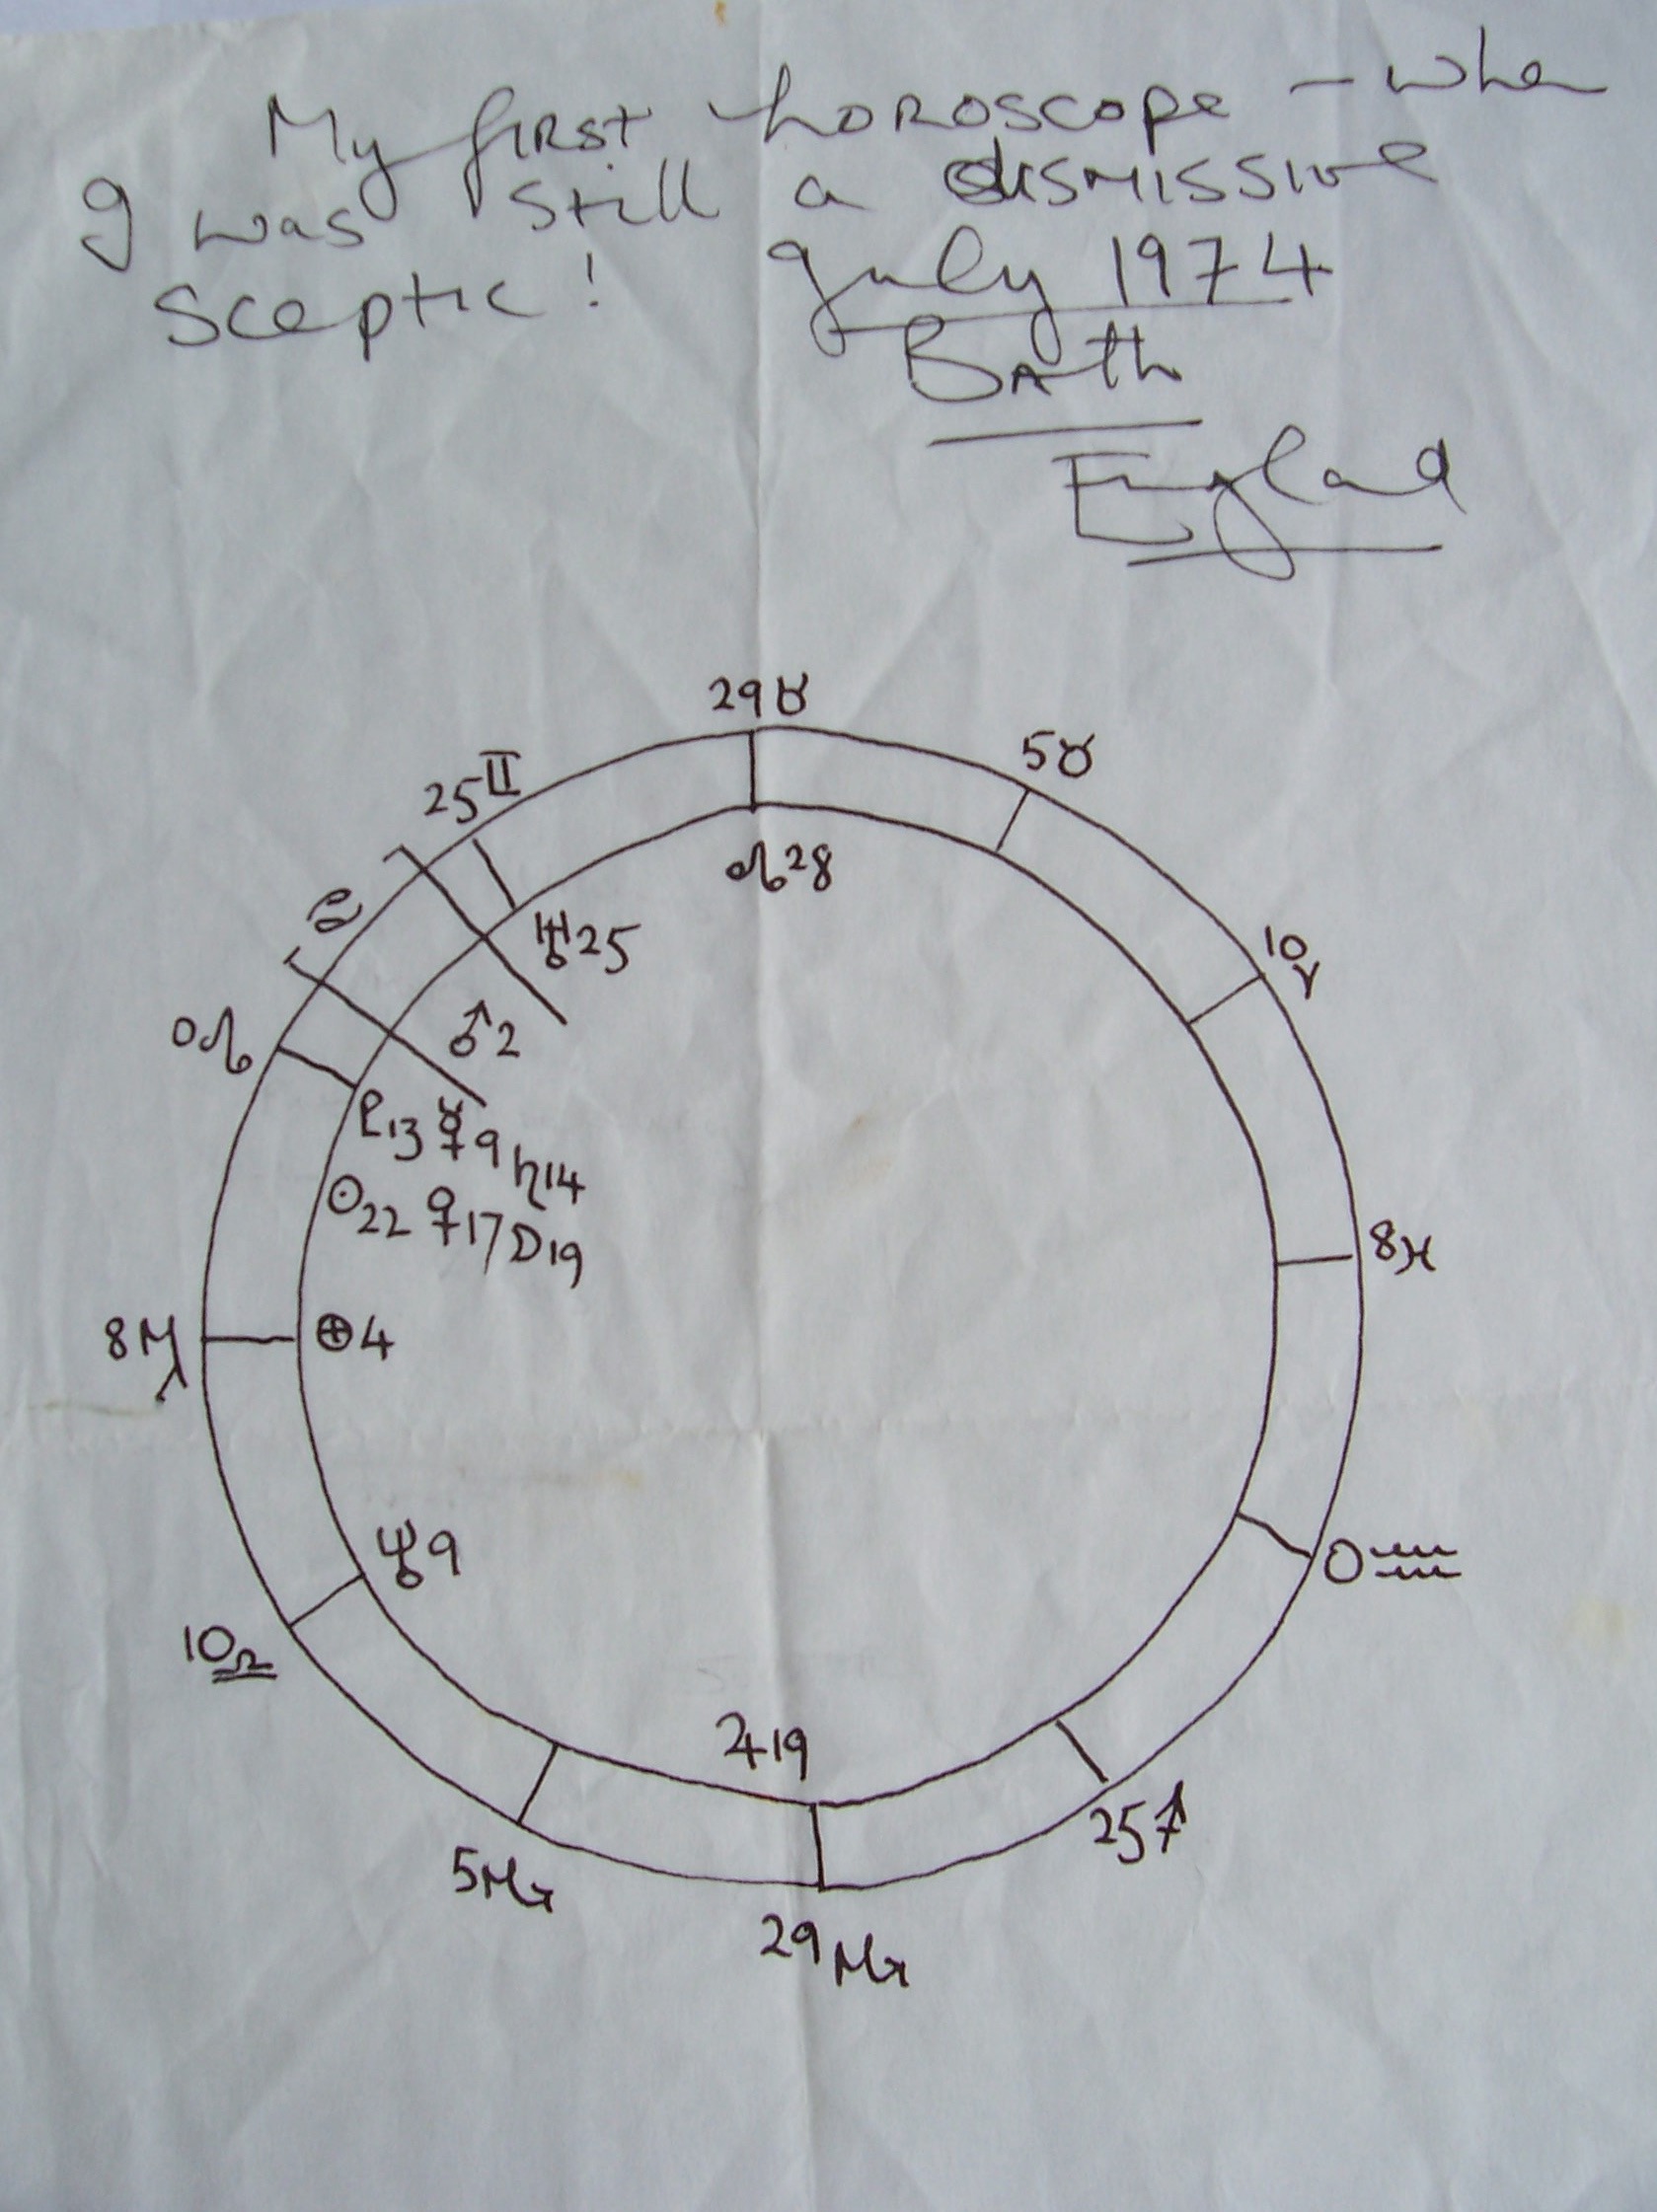 My first horoscope – when
I was still a dismissive
sceptic! July 1974
Bath
England
29♉
5♉
25♊
♌28
10♈
♅25
♋
♂2
0♌
♇13 ☿9 ♄14
☉22 ♀17 ☽19
8♓
8♍
⊕4
♆9
0♒
10♎
♃19
25♐
5♏
29♏